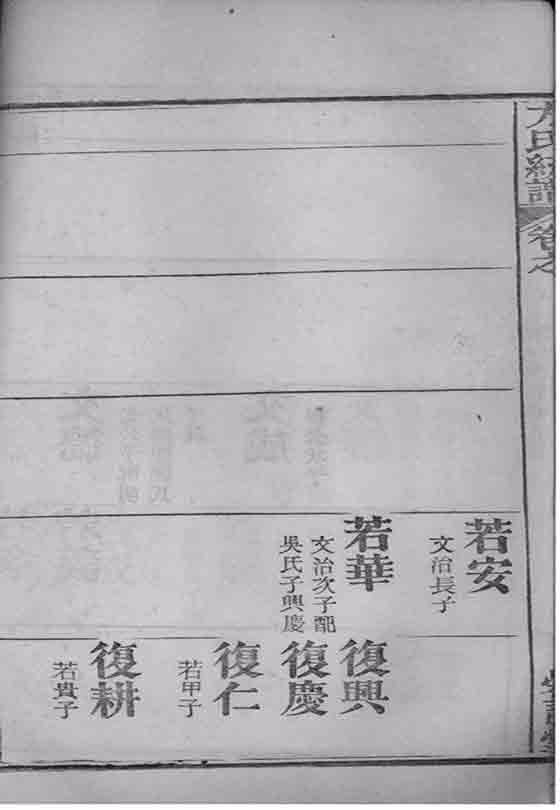 方氏統譜
卷之
若安
文治長子
若華
文治次子配
吳氏子興慶
復興
復慶
復仁
若甲子
復耕
若貴子